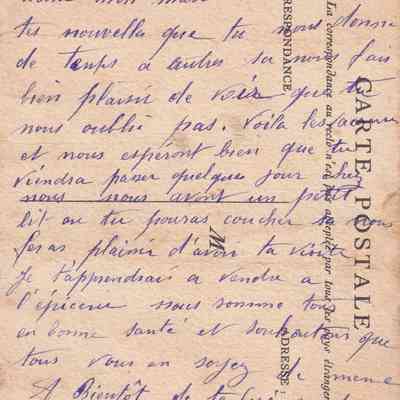 tes nouvelle que tu nous donne
de temps a autres sa nous fais
bien plaisir de voir que tu
nous oublié pas. Voila les
et nous espéront bien que tu
viendra passer quelques jour chez
nous nous avont un petit
lit ou tu pouras coucher sa nous
feras plaisir d'avoir ta visite
Je t'apprendrais a vendre a
l'épicerie nous somme tous
en bonne santé et souhaitons que
tous vous en soyez de meme
A Bientôt de te
CARTE POSTALE
La correspondance au recto n'est pas acceptée par tous les pays étrangers
RESPONDANCE
M
ADRESSE